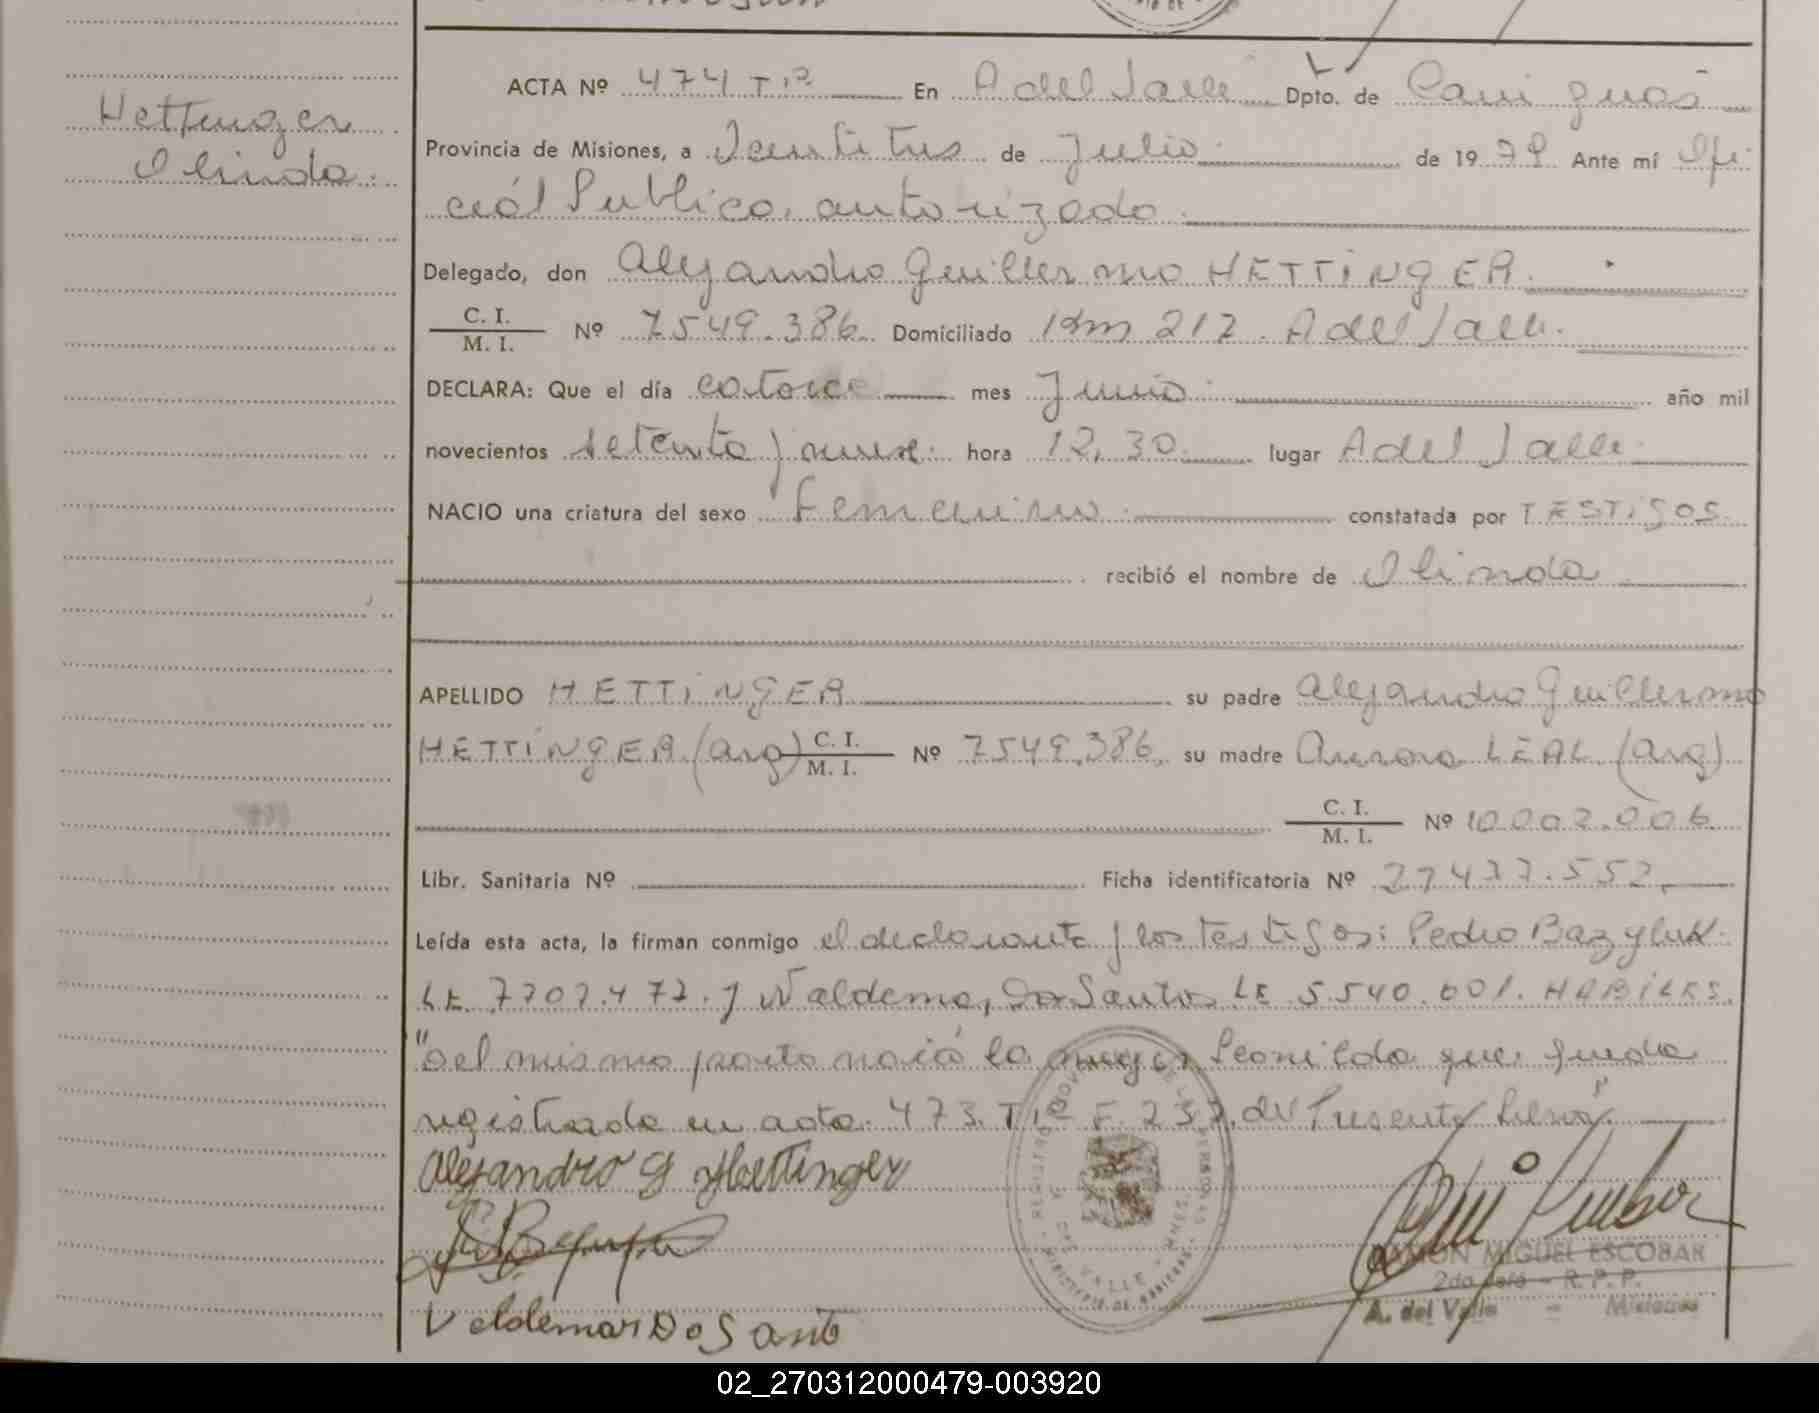 Hettinger
Olinda.
ACTA Nº 474 Tº1º En A del Valle Dpto. de Cainguás
Provincia de Misiones, a Veintitres de Julio de 1979. Ante mí Ofi
cial Publico, autorizado
Delegado, don Alejandro Guillermo HETTINGER.
C. I.
M. I. Nº 7549.386. Domiciliado Km 212. A del Valle.
DECLARA: Que el día catorce mes Junio año mil
novecientos setenta y nueve. hora 12,30. lugar A del Valle
NACIO una criatura del sexo Femenino. constatada por TESTIGOS.
recibió el nombre de Olinda
APELLIDO HETTINGER su padre Alejandro Guillermo
HETTINGER (arg) C. I.
M. I. Nº 7549.386, su madre Aurora LEAL (arg)
C. I.
M. I. Nº 10.002.006
Libr. Sanitaria Nº Ficha identificatoria Nº 27437.552,
Leída esta acta, la firman conmigo el declarante y los testigos: Pedro Bazyluk
LE. 7707.472. y Valdemar Dos Santos LE 5.540.601. HABILES.
"Del mismo parto nació la mujer Leonilda que queda
registrada en acta 473. Tº1º F. 237, del Presente Libro".
Alejandro G Hettinger
Valdemar Do Santo
RAMON MIGUEL ESCOBAR
2do Jefe - R. P. P.
A. del Valle - Misiones
02_270312000479-003920